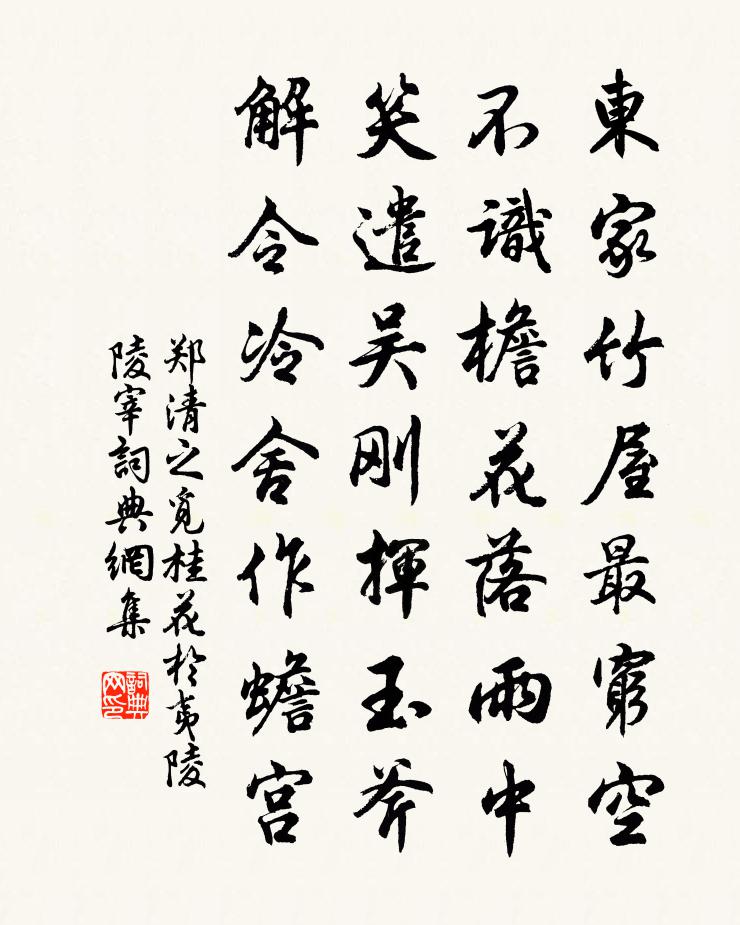 東家竹屋最窮空
不識檐花落雨中
笑遣吴刚揮玉斧
解令冷舍作蟾宫
郑清之覓桂花於夷陵
陵宰詞典網集
詞典網印